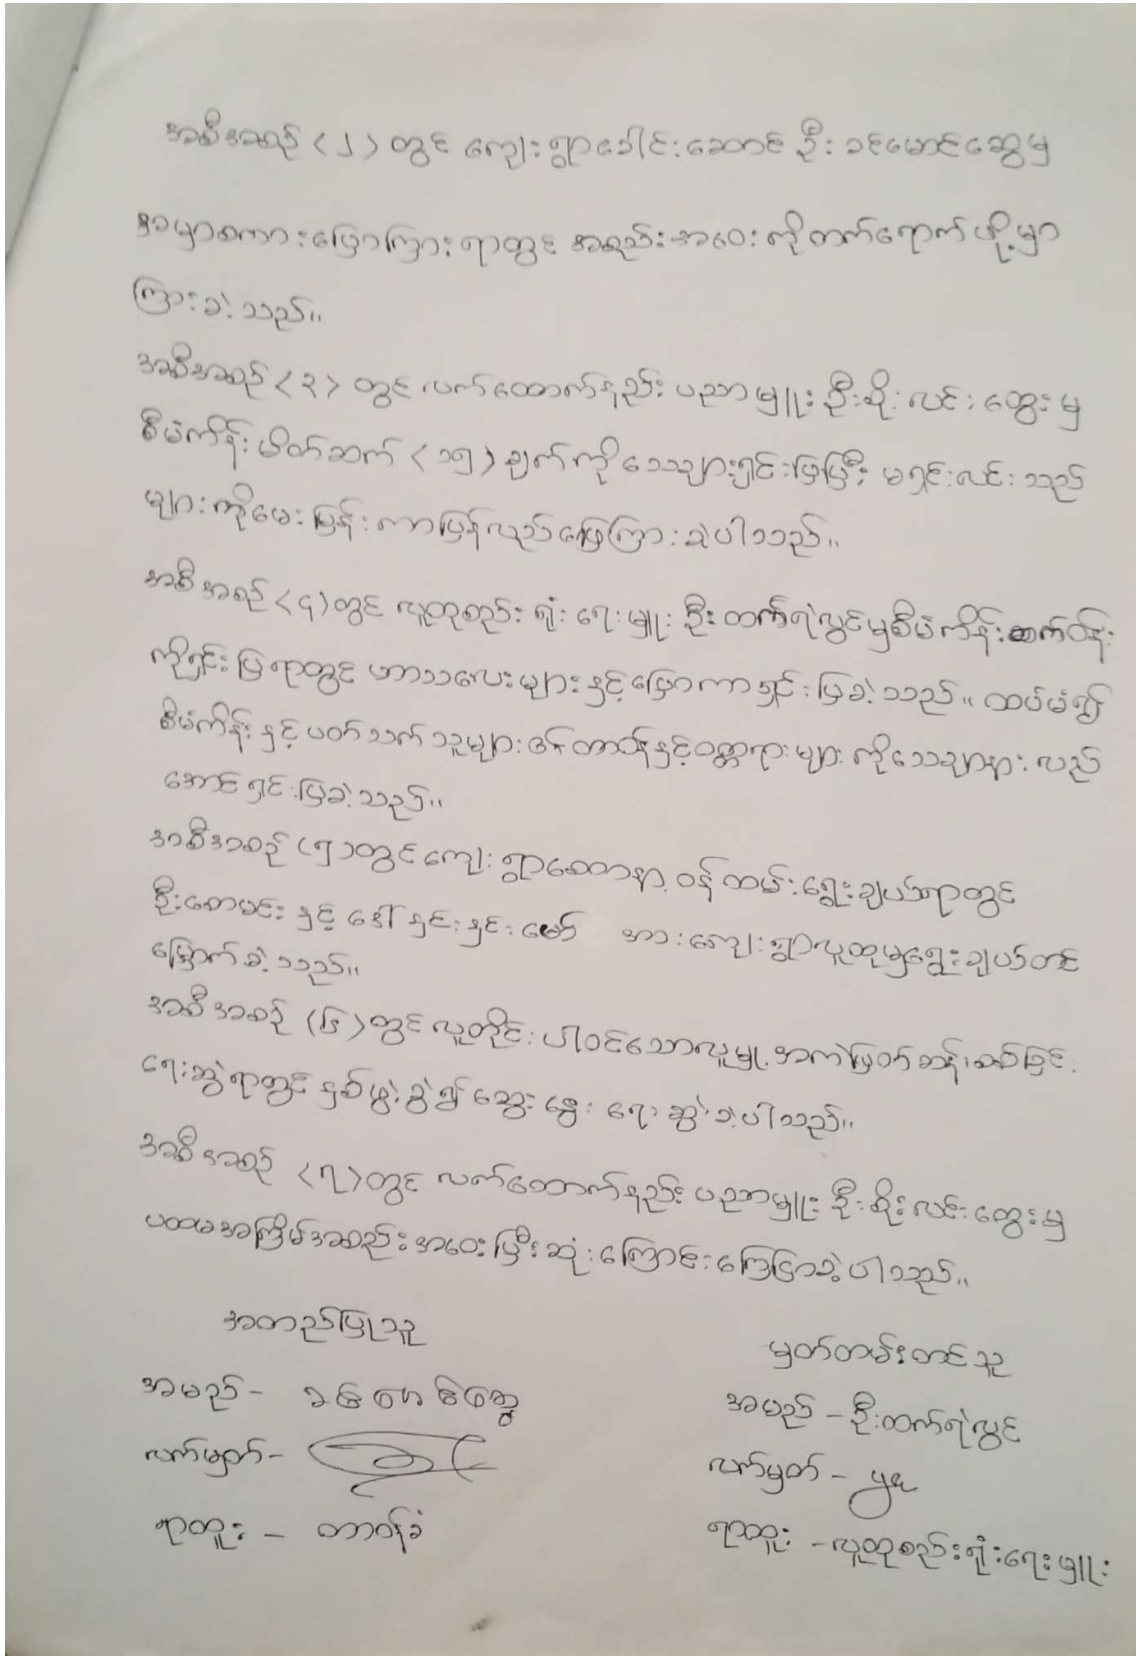 အစီအစဉ် (၂) တွင် ကျေးရွာခေါင်းဆောင် ဦးခင်မောင်ဆွေမှ
အမှာစကားပြောကြားရာတွင် အစည်းအဝေးကိုတက်ရောက်ဖို့မှာ
ကြားခဲ့သည်။
အစီအစဉ် (၃) တွင် လက်ထောက်နည်းပညာမှူး ဦးစိုးလင်းထွေးမှ
စီမံကိန်းမိတ်ဆက် (၁၅) ချက်ကိုသေချာရှင်းပြပြီး မရှင်းလင်းသည်
များကိုမေးမြန်းကာပြန်လည်ဖြေကြားခဲ့ပါသည်။
အစီအစဉ် (၄) တွင် လူထုစည်းရုံးရေးမှူး ဦးထက်ရဲလွင်မှစီမံကိန်းစက်ဝန်း
ကိုရှင်းပြရာတွင် ဟာသလေးများနှင့်ပြောကာရှင်းပြခဲ့သည်။ ထပ်မံ၍
စီမံကိန်းနှင့်ပတ်သက်သူများ၏တာဝန်နှင့်ဝတ္တရားများကိုသေချာနားလည်
အောင်ရှင်းပြခဲ့သည်။
အစီအစဉ် (၅) တွင်ကျေးရွာစေတနာ့ဝန်ထမ်းရွေးချယ်ရာတွင်
ဦးစောမင်းနှင့် ဒေါ်နှင်းနှင်းမော် အားကျေးရွာလူထုမှရွေးချယ်တင်
မြှောက်ခဲ့သည်။
အစီအစဉ် (၆) တွင်လူတိုင်းပါဝင်သောလူမှုအကဲဖြတ်ဆန်းစစ်ခြင်း
ရေးဆွဲရာတွင် နှစ်ဖွဲ့ခွဲ၍ ဆွေးနွေးရေးဆွဲခဲ့ပါသည်။
အစီအစဉ် (၇) တွင် လက်ထောက်နည်းပညာမှူး ဦးစိုးလင်းထွေးမှ
ပထမအကြိမ်အစည်းအဝေးပြီးဆုံးကြောင်းကြေငြာခဲ့ပါသည်။
အတည်ပြုသူ
မှတ်တမ်းတင်သူ
အမည် - ခင်မောင်ဆွေ
အမည် - ဦးထက်ရဲလွင်
လက်မှတ် -
လက်မှတ် -
ရာထူး - တာဝန်ခံ
ရာထူး - လူထုစည်းရုံးရေးမှူး